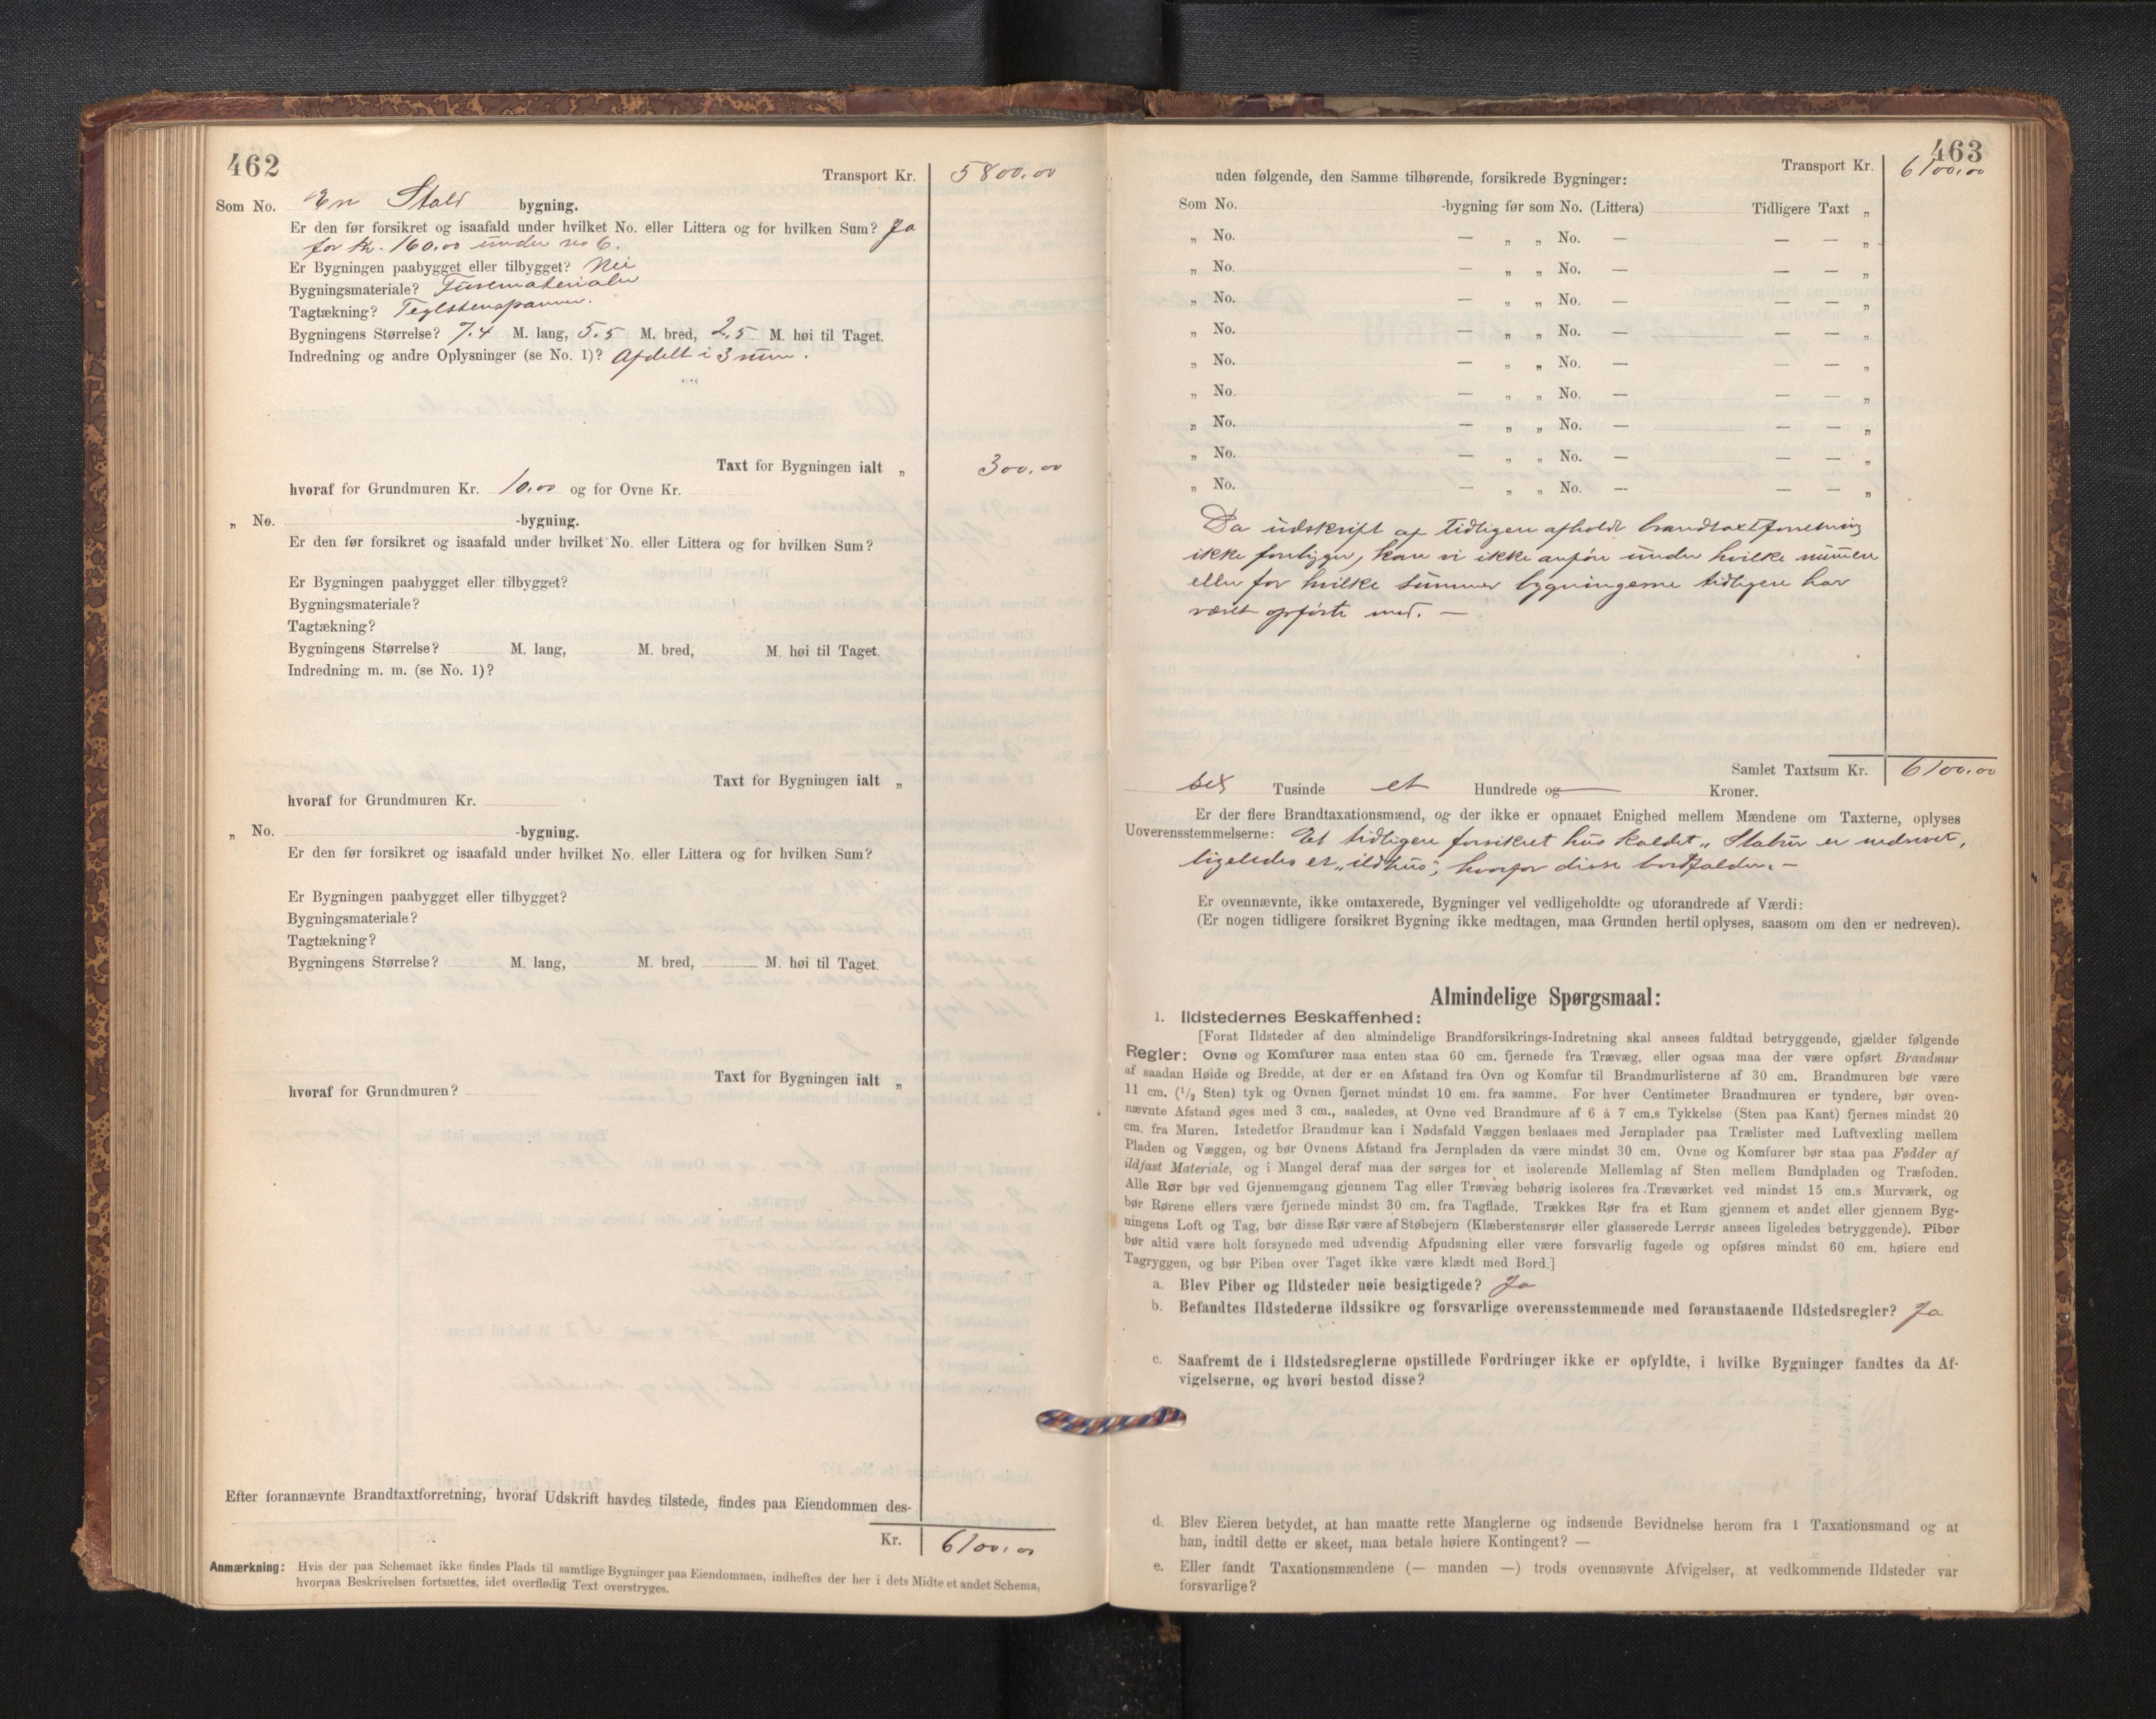 462
Transport Kr. 5800.00
Som No. En Stald bygning.
Er den før forsikret og isaafald under hvilket No. eller Littera og for hvilken Sum? Ja
for kr. 160.00 under no 6.
Er Bygningen paabygget eller tilbygget? Nei
Bygningsmateriale? Furematerialer
Tagtækning? Teglstenspanner.
Bygningens Størrelse? 7.4 M. lang, 5.5 M. bred, 2.5 M. høi til Taget.
Indredning og andre Oplysninger (se No. 1)? Afdelt i 3 rum.
Taxt for Bygningen ialt „ 300.00
hvoraf for Grundmuren Kr. 10.00 og for Ovne Kr.
„ No. -bygning.
Er den før forsikret og isaafald under hvilket No. eller Littera og for hvilken Sum?
Er Bygningen paabygget eller tilbygget?
Bygningsmateriale?
Tagtækning?
Bygningens Størrelse? M. lang, M. bred, M. høi til Taget.
Indredning m. m. (se No. 1)?
Taxt for Bygningen ialt „
hvoraf for Grundmuren Kr.
„ No. -bygning.
Er den før forsikret og isaafald under hvilket No. eller Littera og for hvilken Sum?
Er Bygningen paabygget eller tilbygget?
Bygningsmateriale?
Tagtækning?
Bygningens Størrelse? M. lang, M. bred, M. høi til Taget.
Taxt for Bygningen ialt „
hvoraf for Grundmuren?
Efter forannævnte Brandtaxtforretning, hvoraf Udskrift havdes tilstede, findes paa Eiendommen des-
Kr. 6100.00
Anmærkning: Hvis der paa Schemaet ikke findes Plads til samtlige Bygninger paa Eiendommen, indheftes der her i dets Midte et andet Schema,
hvorpaa Beskrivelsen fortsættes, idet overflødig Text overstryges.
463
Transport Kr. 6100.00
uden følgende, den Samme tilhørende, forsikrede Bygninger:
Som No. -bygning før som No. (Littera) Tidligere Taxt „
„ No. — „ „ No. — — — „
„ No. — „ „ No. — — — „
„ No. — „ „ No. — — — „
„ No. — „ „ No. — — — „
„ No. — „ „ No. — — — „
„ No. — „ „ No. — — — „
„ No. — „ „ No. — — — „
„ No. — „ „ No. — — — „
„ No. — „ „ No. — — — „
Da udskrift af tidligere afholdt brandtaxtforretning
ikke foreligger, kan vi ikke anføre under hvilke numere
eller for hvilke summer bygningerne tidligere har
været opførte med. —
Samlet Taxtsum Kr. 6100.00
sex Tusinde et Hundrede og — Kroner.
Er der flere Brandtaxationsmænd, og der ikke er opnaaet Enighed mellem Mændene om Taxterne, oplyses
Uoverensstemmelserne: Et tidligere forsikret hus kaldet „Stabur er nedrevet,
ligeledes et „ildhus", hvorfor disse bortfalder. —
Er ovennævnte, ikke omtaxerede, Bygninger vel vedligeholdte og uforandrede af Værdi:
(Er nogen tidligere forsikret Bygning ikke medtagen, maa Grunden hertil oplyses, saasom om den er nedreven).
Almindelige Spørgsmaal:
1. Ildstedernes Beskaffenhed:
[Forat Ildsteder af den almindelige Brandforsikrings-Indretning skal ansees fuldtud betryggende, gjælder følgende
Regler: Ovne og Komfurer maa enten staa 60 cm. fjernede fra Trævæg, eller ogsaa maa der være opført Brandmur
af saadan Høide og Bredde, at der er en Afstand fra Ovn og Komfur til Brandmurlisterne af 30 cm. Brandmuren bør være
11 cm. (1/2 Sten) tyk og Ovnen fjernet mindst 10 cm. fra samme. For hver Centimeter Brandmuren er tyndere, bør oven-
nævnte Afstand øges med 3 cm., saaledes, at Ovne ved Brandmure af 6 á 7 cm.s Tykkelse (Sten paa Kant) fjernes mindst 20
cm. fra Muren. Istedetfor Brandmur kan i Nødsfald Væggen beslaaes med Jernplader paa Trælister med Luftvexling mellem
Pladen og Væggen, og bør Ovnens Afstand fra Jernpladen da være mindst 30 cm. Ovne og Komfurer bør staa paa Fødder af
ildfast Materiale, og i Mangel deraf maa der sørges for et isolerende Mellemlag af Sten mellem Bundpladen og Træfoden.
Alle Rør bør ved Gjennemgang gjennem Tag eller Trævæg behørig isoleres fra Træværket ved mindst 15 cm.s Murværk, og
bør Rørene ellers være fjernede mindst 30 cm. fra Tagflade. Trækkes Rør fra et Rum gjennem et andet eller gjennem Byg-
ningens Loft og Tag, bør disse Rør være af Støbejern (Klæberstensrør eller glasserede Lerrør ansees ligeledes betryggende). Piber
bør altid være helt forsynede med udvendig Afpudsning eller være forsvarlig fugede og opføres mindst 60 cm. høiere end
Tagryggen, og bør Piben over Taget ikke være klædt med Bord.]
a. Blev Piber og Ildsteder nøie besigtigede? Ja
b. Befandtes Ildstederne ildssikre og forsvarlige overensstemmende med foranstaaende Ildstedsregler? Ja
c. Saafremt de i Ildstedsreglerne opstillede Fordringer ikke er opfyldte, i hvilke Bygninger fandtes da Af-
vigelserne, og hvori bestod disse?
d. Blev Eieren betydet, at han maatte rette Manglerne og indsende Bevidnelse herom fra 1 Taxationsmand og at
han, indtil dette er skeet, maa betale høiere Kontingent? —
e. Eller fandt Taxationsmændene (— manden —) trods ovennævnte Afvigelser, at vedkommende Ildsteder var
forsvarlige?